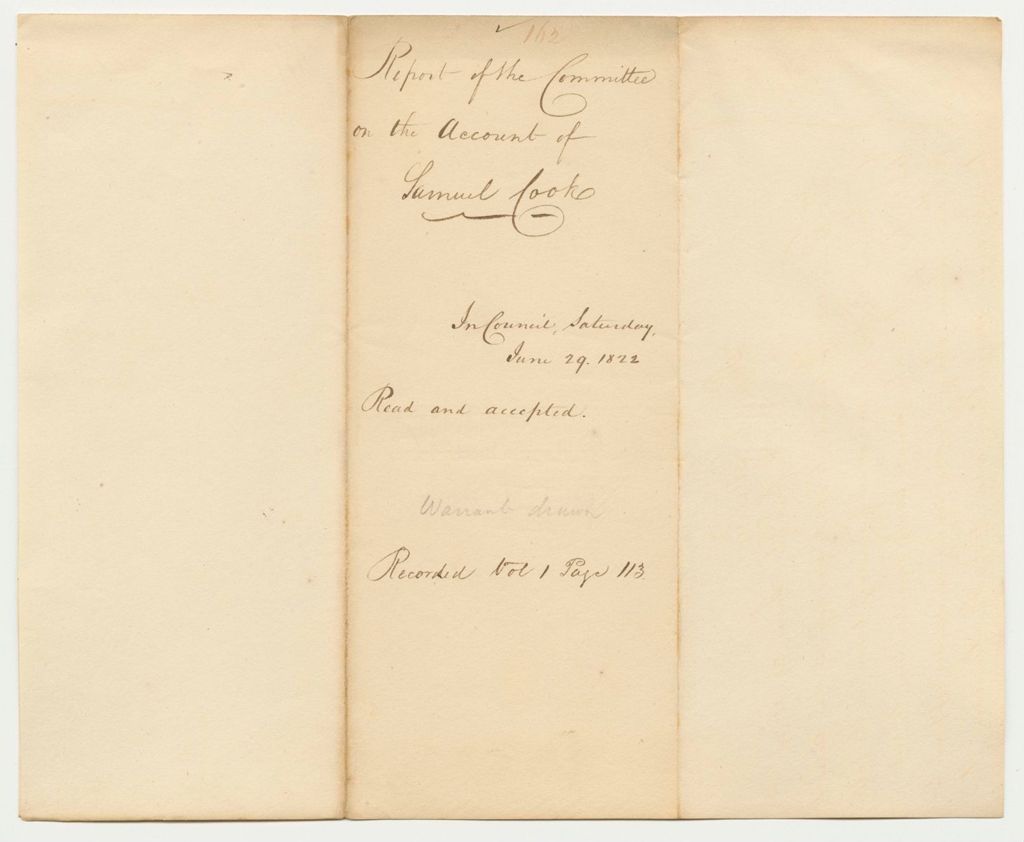 162
Report of the Committee
on the Account of
Samuel Cook
In Council, Saturday,
June 29. 1822
Read and accepted.
Warrant drawn
Recorded Vol 1 Page 113